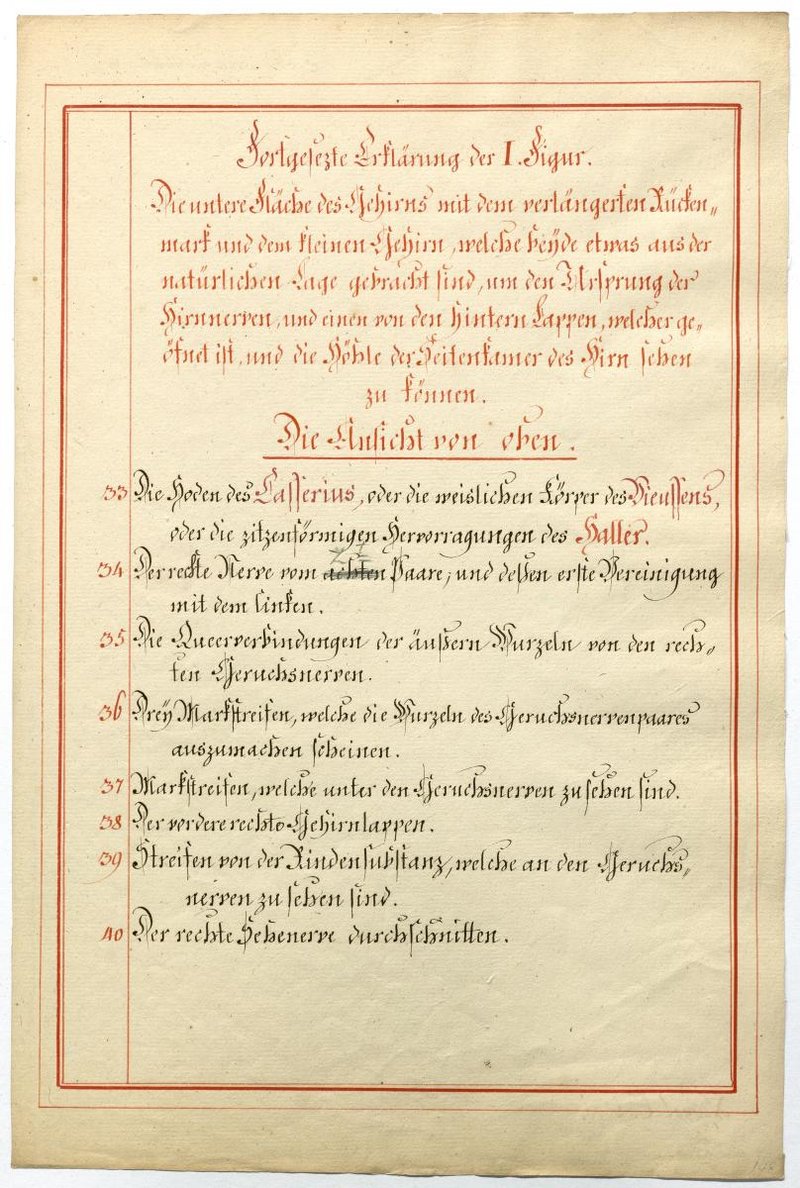 Fortgesezte Erklärung der I. Figur.
Die untere Fläche des Gehirns mit dem verlängerten Rücken„
mark und dem kleinen Gehirn, welche beÿde etwas aus der
natürlichen Lage gebracht sind, um den Ursprung der
Hirnnerven, und einen von den hintern Lappen, welcher ge„
öfnet ist, und die Höhle der Seitenkamer des Hirn sehen
zu können.
Die Ansicht von oben.
33 Die Hoden des Casserius, oder die weislichen Körper des Vieussens,
oder die zitzenförmigen Hervorragungen des Haller.
34 Der rechte Nerve vom achten Paare, und deßen erste Vereinigung
mit dem linken.
35 Die Queerverbindungen der äußern Wurzeln von den rech„
ten Geruchsnerven.
36 Dreÿ Markstreifen, welche die Wurzeln des Geruchsnervenpaares
auszumachen scheinen.
37 Markstreifen, welche unter den Geruchsnerven zu sehen sind.
38 Der vordere rechte Gehirnlappen.
39 Streifen von der Rindensubstanz, welche an den Geruchs„
nerven zu sehen sind.
40 Der rechte Sehenerve durchschnitten.